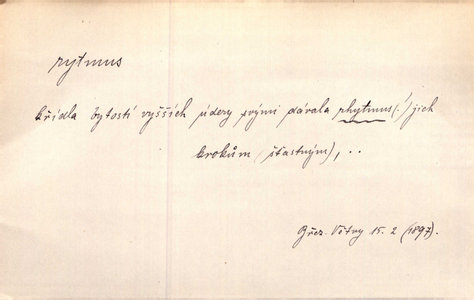 rytmus
křídla bytostí vyšších údery svými dávala rhytmus (!) jich
krokům (šťastným), ..
Břez. Větry 15. 2 (1897).